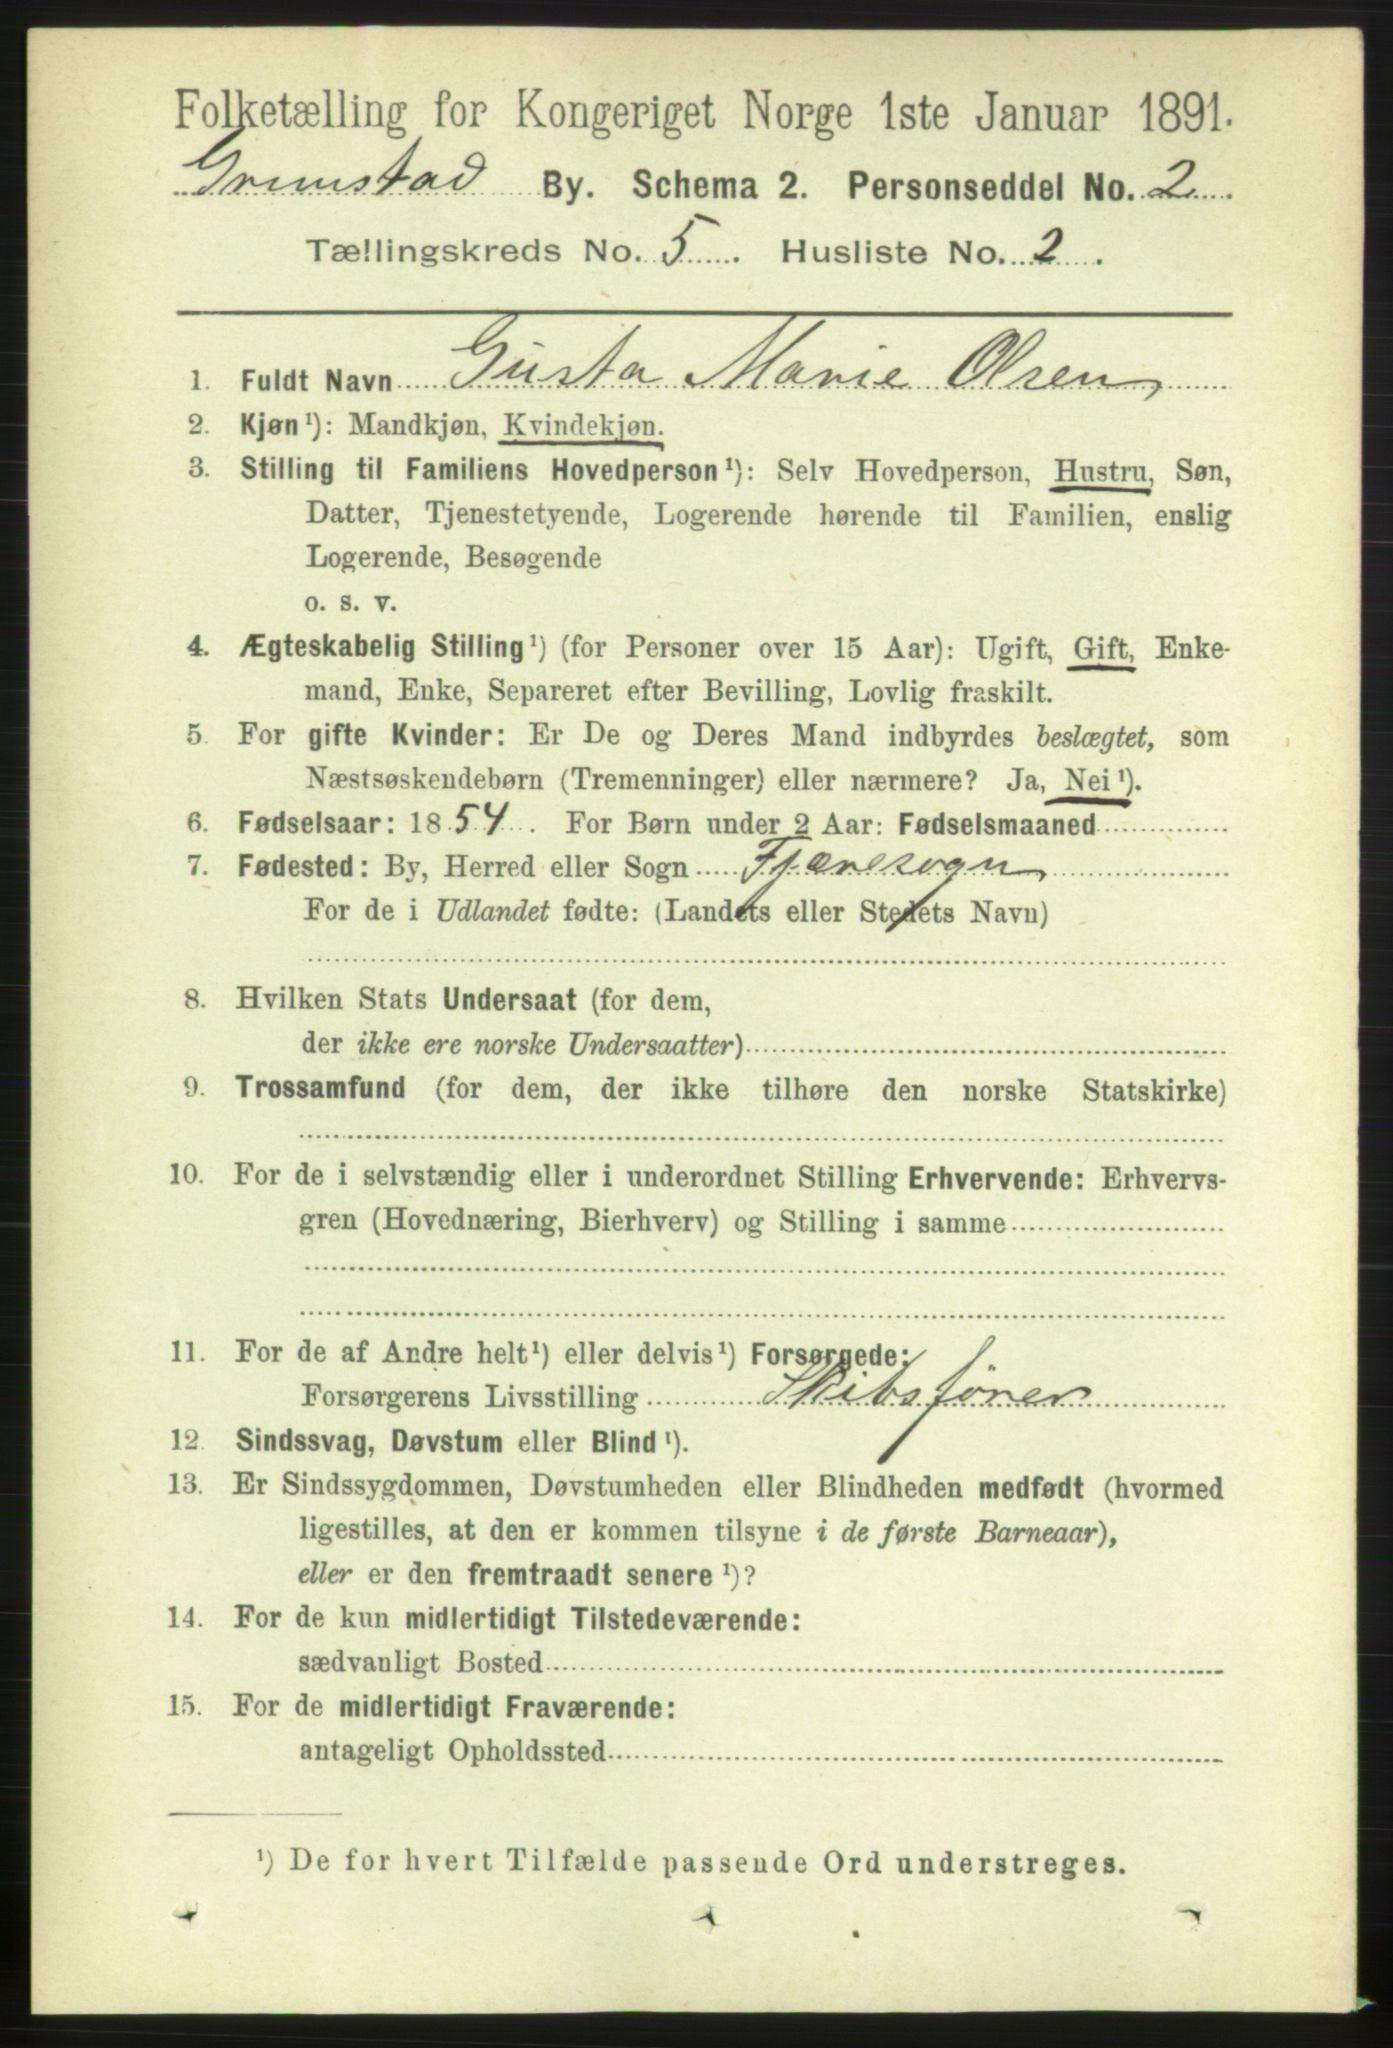 Folketælling for Kongeriget Norge 1ste Januar 1891.
Grimstad By. Schema 2. Personseddel No. 2
Tællingskreds No. 5. Husliste No. 2.
1. Fuldt Navn Gusta Marie Olsen,
2. Kjøn ¹): Mandkjøn, Kvindekjøn.
3. Stilling til Familiens Hovedperson ¹): Selv Hovedperson, Hustru, Søn,
Datter, Tjenestetyende, Logerende hørende til Familien, enslig
Logerende, Besøgende
o. s. v.
4. Ægteskabelig Stilling ¹) (for Personer over 15 Aar): Ugift, Gift, Enke-
mand, Enke, Separeret efter Bevilling, Lovlig fraskilt.
5. For gifte Kvinder: Er De og Deres Mand indbyrdes beslægtet, som
Næstsøskendebørn (Tremenninger) eller nærmere? Ja, Nei ¹).
6. Fødselsaar: 1854. For Børn under 2 Aar: Fødselsmaaned
7. Fødested: By, Herred eller Sogn Fjæresogn
For de i Udlandet fødte: (Landets eller Stedets Navn)
8. Hvilken Stats Undersaat (for dem,
der ikke ere norske Undersaatter)
9. Trossamfund (for dem, der ikke tilhøre den norske Statskirke)
10. For de i selvstændig eller i underordnet Stilling Erhvervende: Erhvervs-
gren (Hovednæring, Bierhverv) og Stilling i samme
11. For de af Andre helt ¹) eller delvis ¹) Forsørgede:
Forsørgerens Livsstilling Skibsfører
12. Sindssvag, Døvstum eller Blind ¹).
13. Er Sindssygdommen, Døvstumheden eller Blindheden medfødt (hvormed
ligestilles, at den er kommen tilsyne i de første Barneaar),
eller er den fremtraadt senere ¹)?
14. For de kun midlertidigt Tilstedeværende:
sædvanligt Bosted
15. For de midlertidigt Fraværende:
antageligt Opholdssted
¹) De for hvert Tilfælde passende Ord understreges.